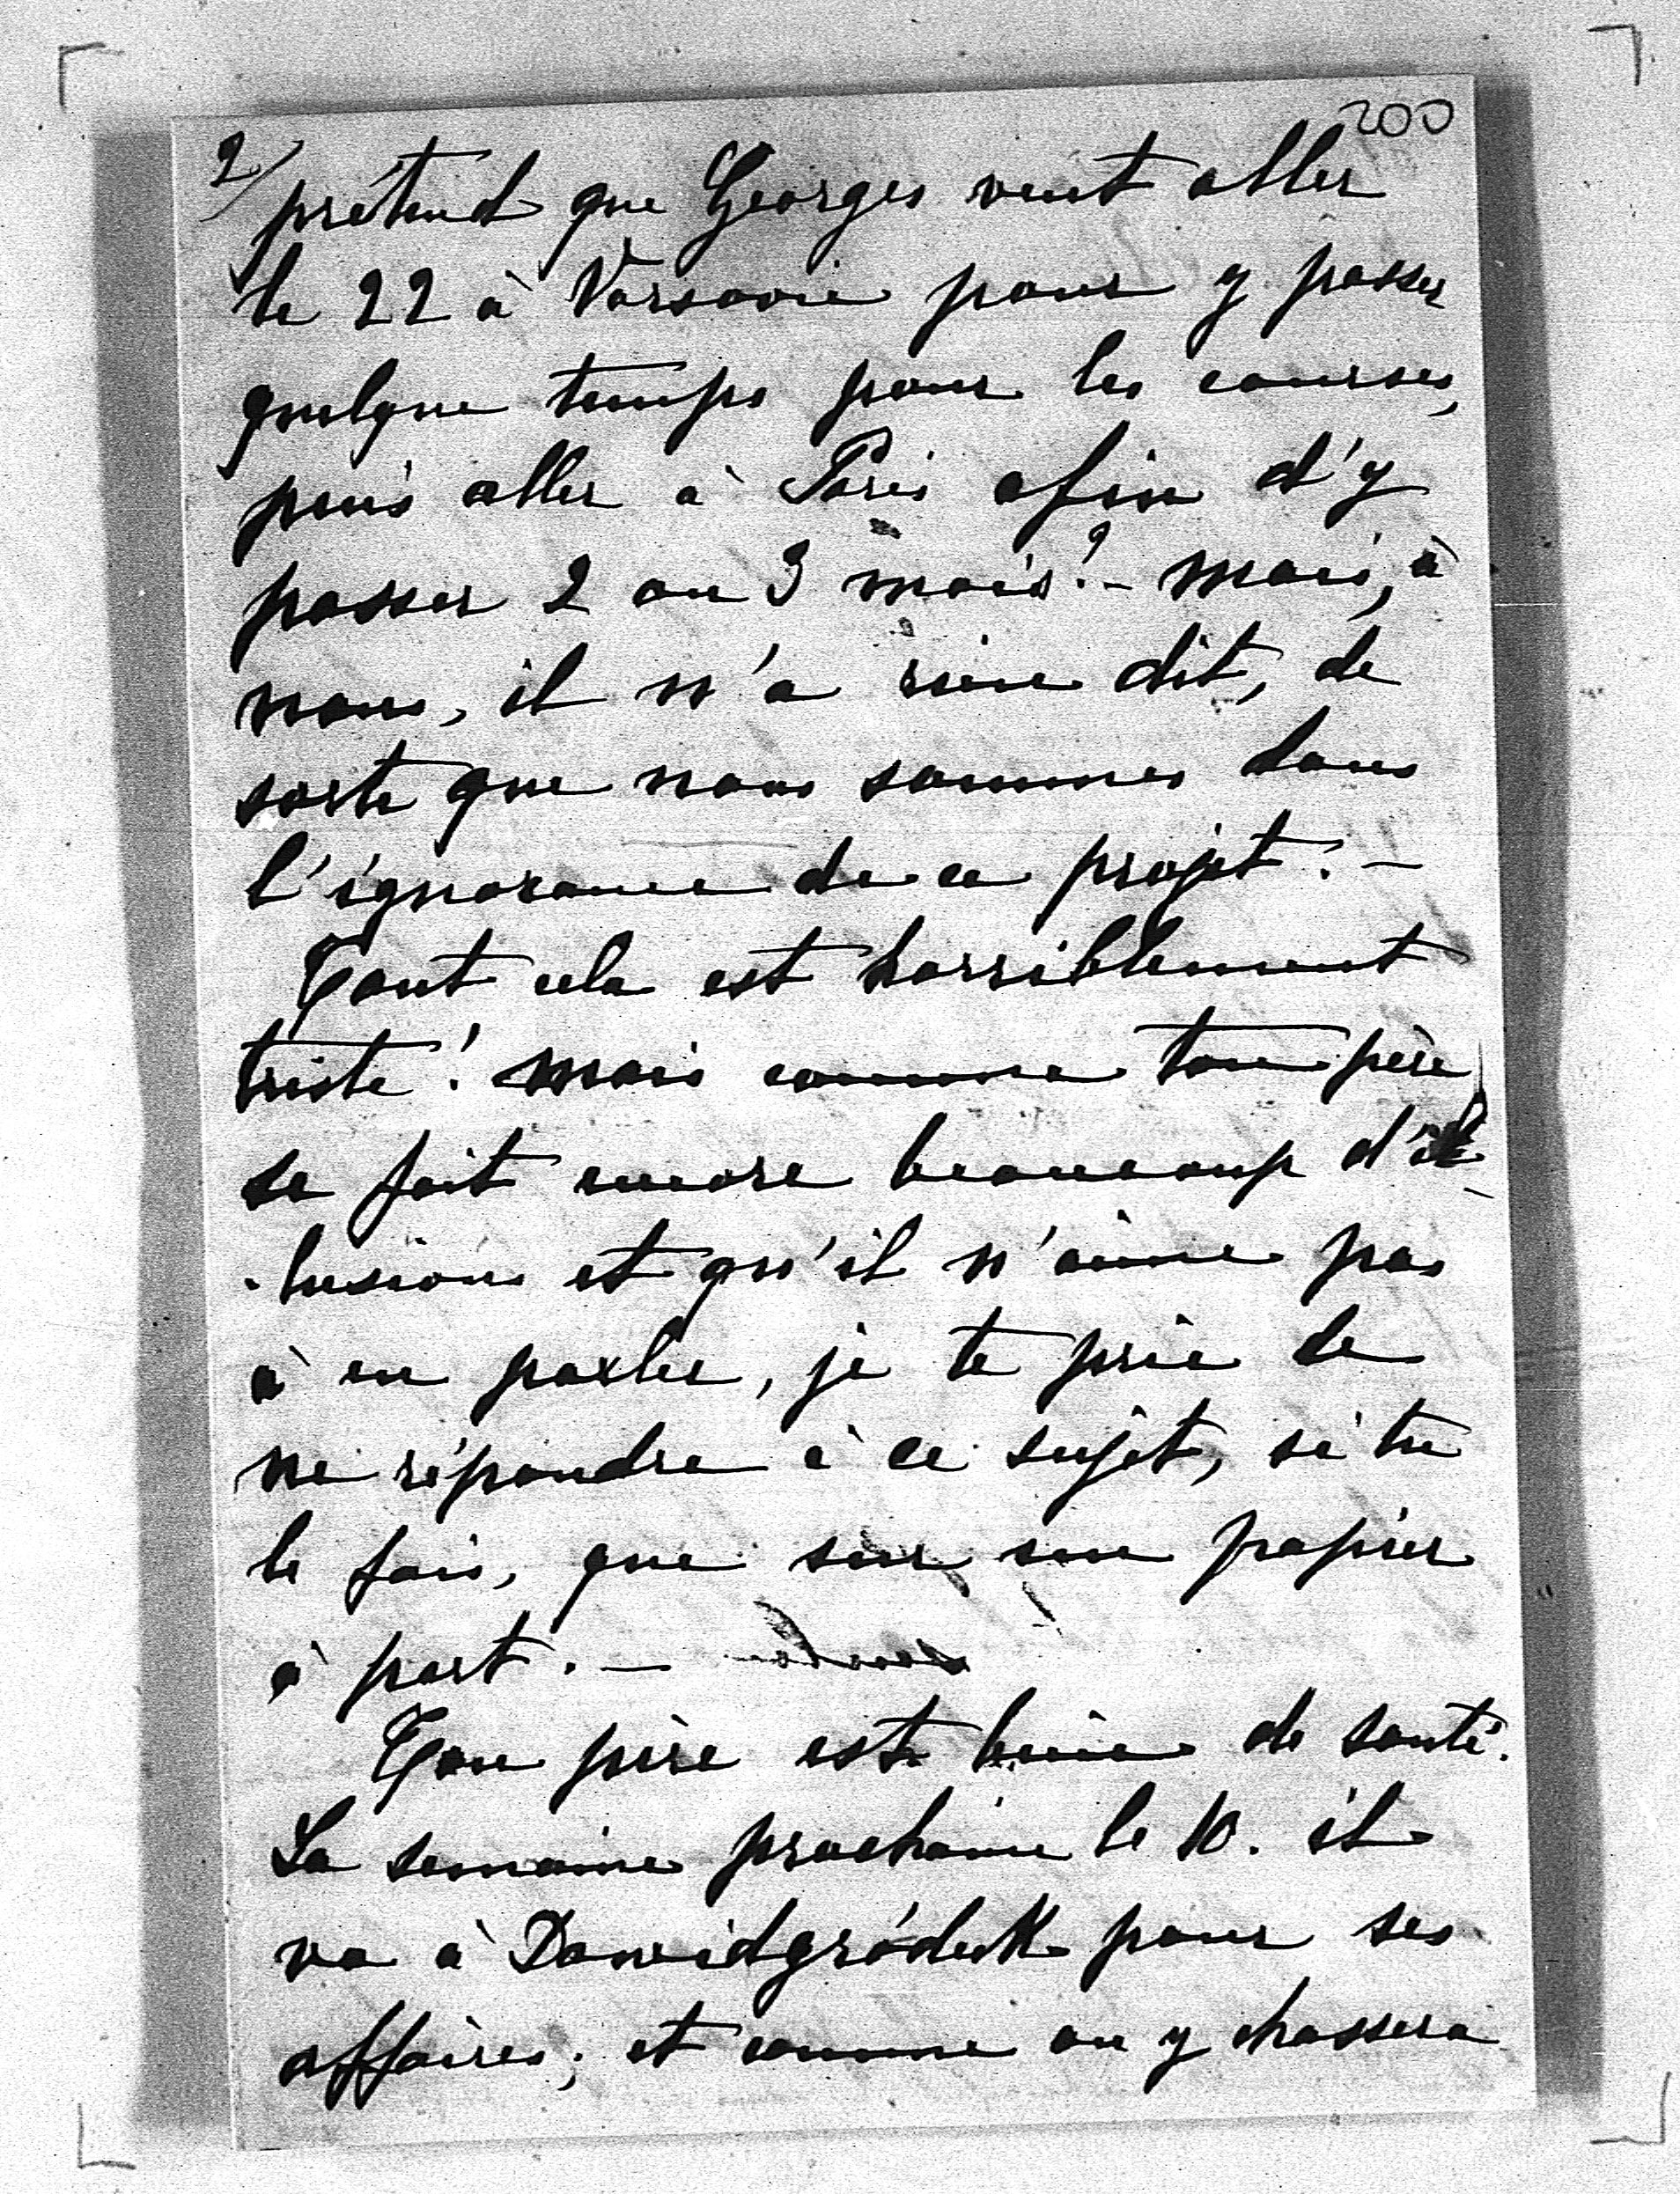 200
2/
prétend que Georges veut aller
le 22 à Varsovie pour y passer
quelque temps pour les courses,
puis aller à Paris afin d'y
passer 2 ou 3 mois? - mais, à
nous, il n'a rien dit, de
sorte que nous sommes dans
l'ignorance de ce projet. -
Tout cela est horriblement
triste! mais comme ton père
se fait encore beaucoup d'il-
-lusions et qu'il n'aime pas
à en parler, je te prie de
ne répondre à ce sujet, si tu
le fais, que sur un papier
à part. -
Ton père est bien de santé.
La semaine prochaine le 10. il
va à Dawidgródek pour ses
affaires; et comme on y chassera